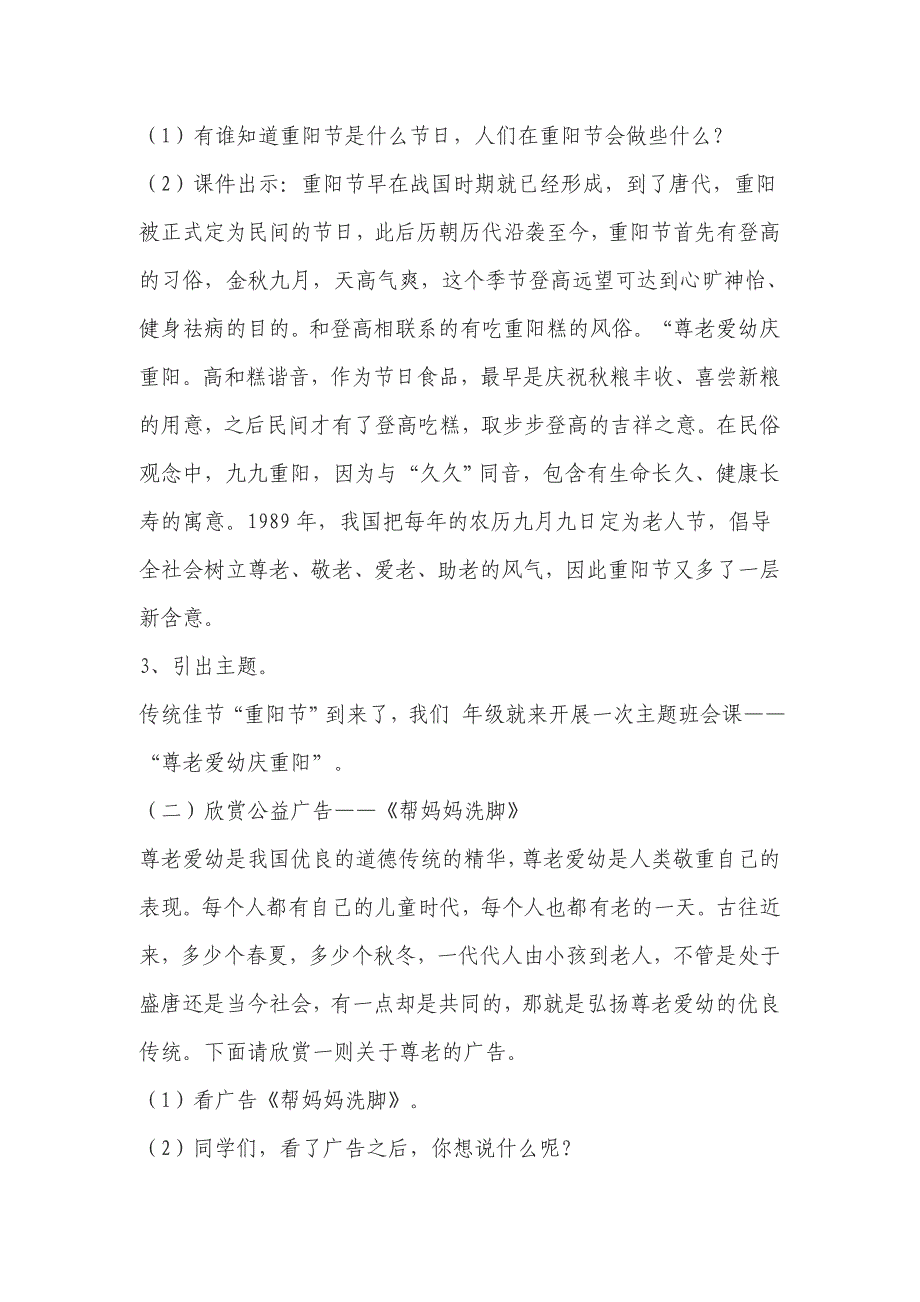 （1）有谁知道重阳节是什么节日，人们在重阳节会做些什么？
（2）课件出示：重阳节早在战国时期就已经形成，到了唐代，重阳
被正式定为民间的节日，此后历朝历代沿袭至今，重阳节首先有登高
的习俗，金秋九月，天高气爽，这个季节登高远望可达到心旷神怡、
健身祛病的目的。和登高相联系的有吃重阳糕的风俗。“尊老爱幼庆
重阳。高和糕谐音，作为节日食品，最早是庆祝秋粮丰收、喜尝新粮
的用意，之后民间才有了登高吃糕，取步步登高的吉祥之意。在民俗
观念中，九九重阳，因为与 “久久”同音，包含有生命长久、健康长
寿的寓意。1989 年，我国把每年的农历九月九日定为老人节，倡导
全社会树立尊老、敬老、爱老、助老的风气，因此重阳节又多了一层
新含意。
3、引出主题。
传统佳节“重阳节”到来了，我们 年级就来开展一次主题班会课——
“尊老爱幼庆重阳”。
（二）欣赏公益广告——《帮妈妈洗脚》
尊老爱幼是我国优良的道德传统的精华，尊老爱幼是人类敬重自己的
表现。每个人都有自己的儿童时代，每个人也都有老的一天。古往近
来，多少个春夏，多少个秋冬，一代代人由小孩到老人，不管是处于
盛唐还是当今社会，有一点却是共同的，那就是弘扬尊老爱幼的优良
传统。下面请欣赏一则关于尊老的广告。
（1）看广告《帮妈妈洗脚》。
（2）同学们，看了广告之后，你想说什么呢？